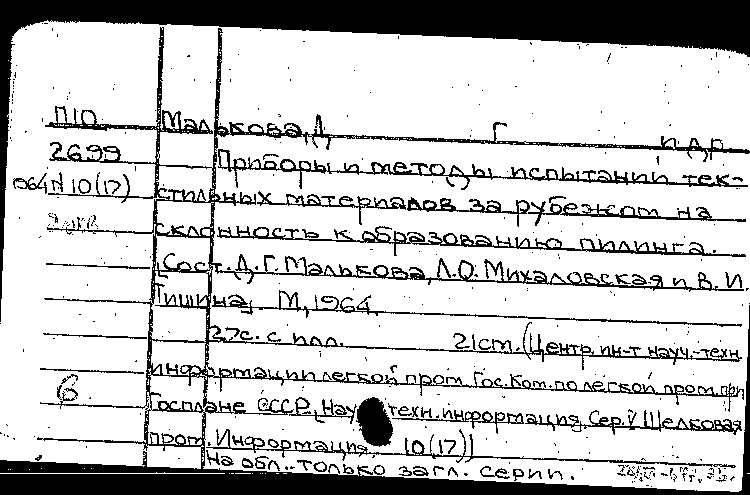 П10 Малькова, Д Г и др
2699 Приборы и методы испытаний тек-
1964 N 10(17) стильных материалов за рубежом на
склонность к образованию пилинга.
[Сост. Д. Г. Малькова, Л. О. Михаловская и В. И.
Тишина]. М, 1964.
27с. с илл. 21см. (Центр. ин-т науч.-техн
информации легкой пром. Гос. Ком. по легкой пром. при
6 Госплане СССР. Науч техн. информация. Сер. V Шелковая
пром. Информация, 10(17))
На обл. только загл. серии.